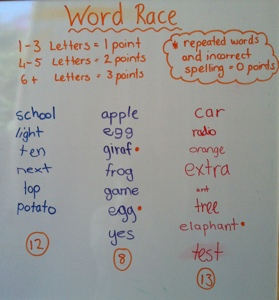 Word Race
1-3 Letters = 1 point
4-5 Letters = 2 points
6+ Letters = 3 points
* repeated words
and incorrect
spelling = 0 points
school
light
ten
next
top
potato
12
apple
egg
giraf*
frog
game
egg*
yes
8
car
radio
orange
extra
ant
tree
elaphant*
test
13